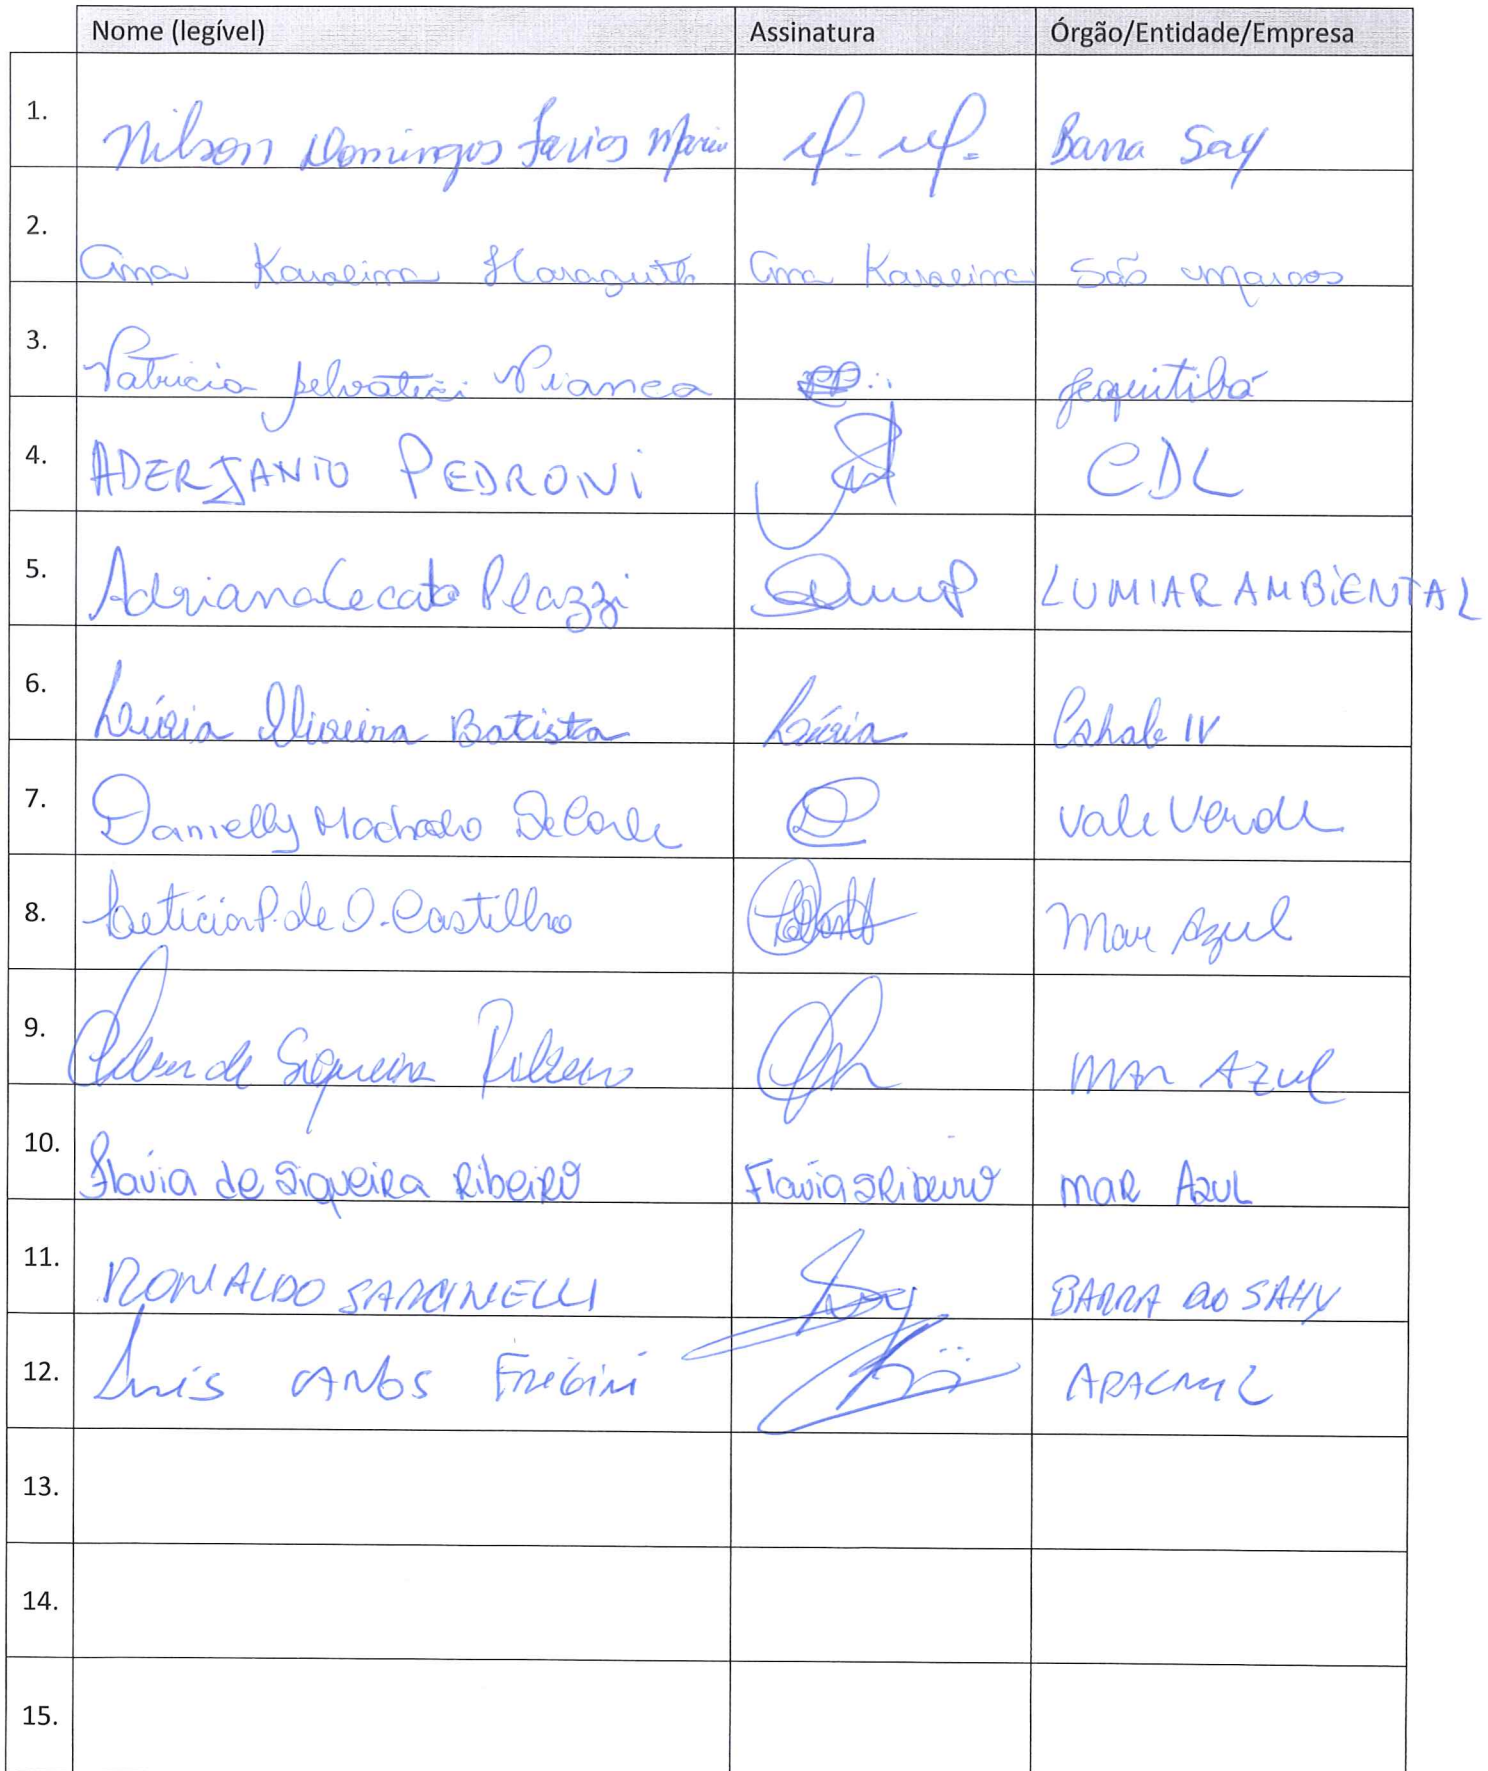 Nome (legível) Assinatura Órgão/Entidade/Empresa
1. Nilson Domingos Farias Barra Say
2. Ana Karolina Ana Karolina São Marcos
3. Patricia Pianca Jequitibá
4. ADERJANIO PEDRONI CDL
5. Adriana Cecato Plazzi LUMIAR AMBIENTAL
6. Lúcia Oliveira Batista Lúcia IV
7. Danielly Machado DeCarli Vale Verde
8. Letícia P. de O. Castilho Mar Azul
9. de Siqueira Ribeiro Mar Azul
10. Flávia de Siqueira Ribeiro Flávia SRibeiro mar Azul
11. RONALDO SARCINELLI BARRA do SAHY
12. Luis CARLOS FRIGINI
13.
14.
15.